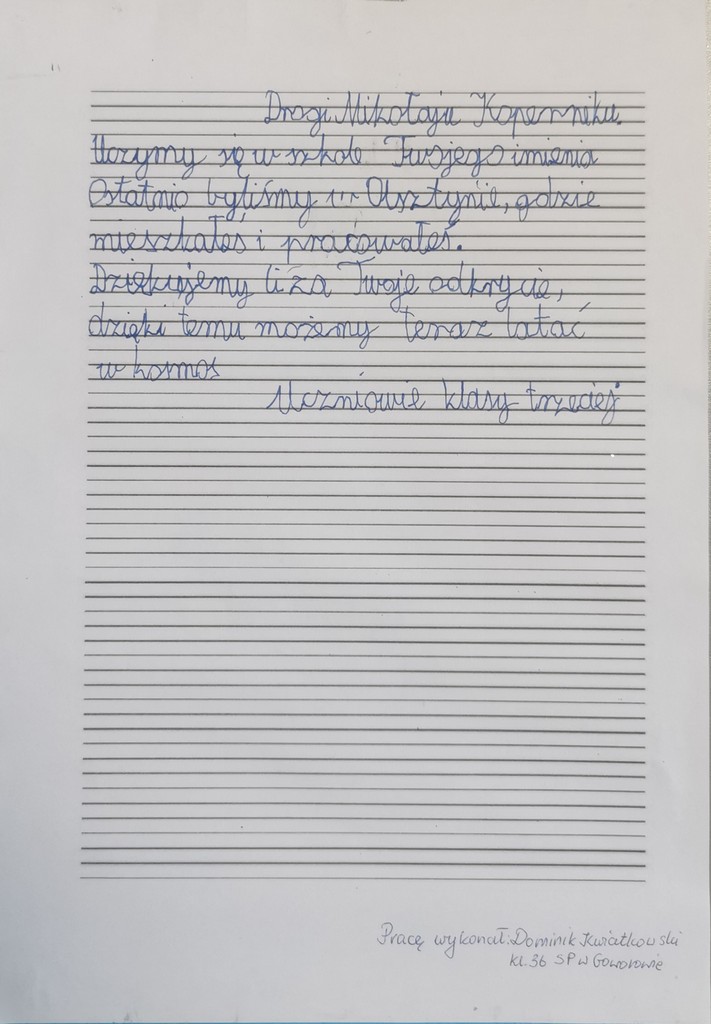 Drogi Mikołaju Koperniku.
Uczymy się w szkole Twojego imienia
Ostatnio byliśmy w Olsztynie, gdzie
mieszkałeś i pracowałeś.
Dziękujemy Ci za Twoje odkrycie,
dzięki temu możemy teraz latać
w kosmos
Uczniowie klasy trzeciej
Pracę wykonał: Dominik Kwiatkowski
kl. 3b SP w Goworowie